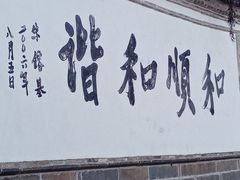 和順和諧
朱鎔基
二〇〇六年
八月五日